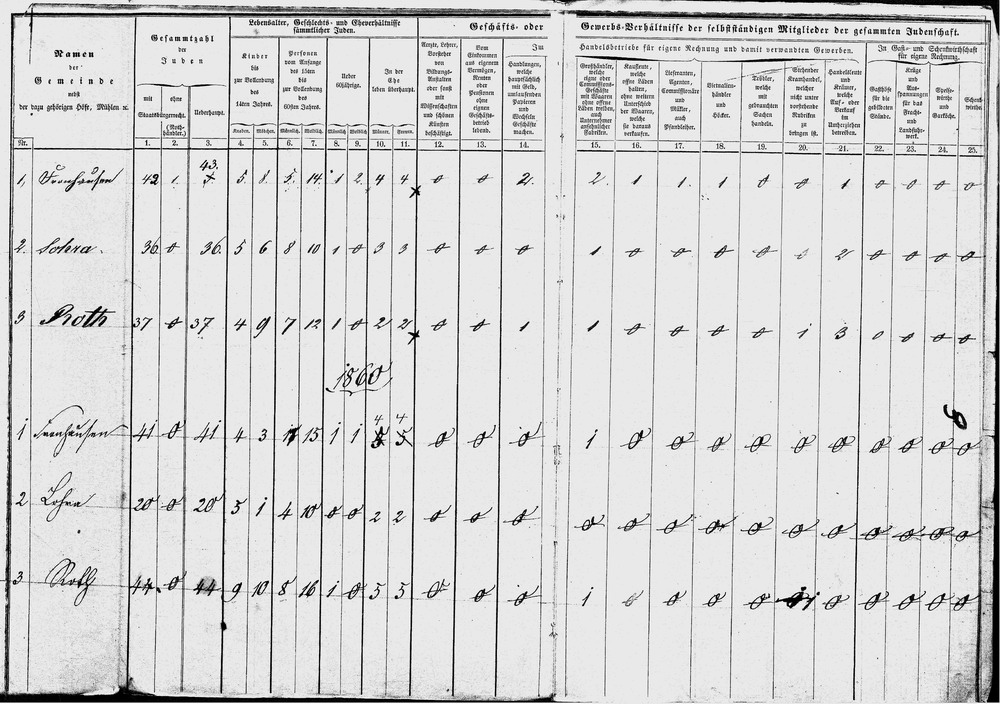 Lebensalter, Geschlechts- und Eheverhältnisse sämmtlicher Juden.
Geschäfts- oder Gewerbs-Verhältnisse der selbstständigen Mitglieder der gesammten Judenschaft.
Namen der Gemeinde nebst der dazu gehörigen Höfe, Mühlen ꝛc.
Gesammtzahl der Juden
mit ohne Staatsbürgerrecht.
(Nothhändler.)
Ueberhaupt.
Kinder bis zur Vollendung des 14ten Jahres.
Personen vom Anfange des 15ten bis zur Vollendung des 60sten Jahres.
Ueber 60jährige.
In der Ehe leben überhaupt.
Knaben. Mädchen. Männlich. Weiblich. Männlich. Weiblich. Männer. Frauen.
Aerzte, Lehrer, Vorsteher von Bildungs-Anstalten oder sonst mit Wissenschaften und schönen Künsten beschäftigt.
Vom Einkommen aus eigenem Vermögen, Renten oder Pensionen ohne eigenen Geschäftsbetrieb lebend.
Im Handelsbetriebe für eigene Rechnung und damit verwandten Gewerben.
Handlungen, welche hauptsächlich mit Geld, umlaufenden Papieren und Wechseln Geschäfte machen.
Großhändler, welche eigne oder Commissions-Geschäfte mit Waaren ohne offene Läden treiben, auch Unternehmer ansehnlicher Fabriken.
Kaufleute, welche eigne offne Läden halten, ohne weitern Unterschied der Waaren, welche sie daraus verkaufen.
Lieferanten, Agenten, Commissionäre und Mäkler, auch Pfandleiher.
Victualienhändler und Höcker.
Trödler, welche mit gebrauchten Sachen handeln.
Stehender Kramhandel, welcher nicht unter vorstehende Rubriken zu bringen ist.
Handelsleute und Krämer, welche Auf- oder Verkauf im Umherziehen betreiben.
In Gast- und Schenkwirthschaft für eigene Rechnung.
Gasthöfe für die gebildeten Stände.
Krüge und Ausspannungen für das Fracht- und Landfuhrwerk.
Speisewirthe und Garköche.
Schenkwirthe.
Nr. 1. 2. 3. 4. 5. 6. 7. 8. 9. 10. 11. 12. 13. 14. 15. 16. 17. 18. 19. 20. 21. 22. 23. 24. 25.
1, Fronhausen 42 1. 43. 5. 8. 5. 14. 1 2. 4 4 0 0 2. 2. 1 1. 1 0 0 1 0 0 0 0
2. Lohra. 36 0 36. 5 6 8 10 1 0 3 3 0 0 0 1 0 0 0 0 0 2 0 0 0 0
3 Roth 37 0 37 4 9 7 12 1 0 2 2 0 0 1 1 0 0 0 0 1 3 0 0 0 0
1860
1 Fronhausen 41 0 41 4 3 17 15 1 1 4 4 0 0 0 1 0 0 0 0 0 0 0 0 0 0
2 Lohra 20 0 20 5 1 4 10 0 0 2 2 0 0 0 0 0 0 0 0 0 0 0 0 0 0
3 Roth 44 0 44 9 10 8 16 1 0 5 5 0 0 0 1 0 0 0 0 1 0 0 0 0 0